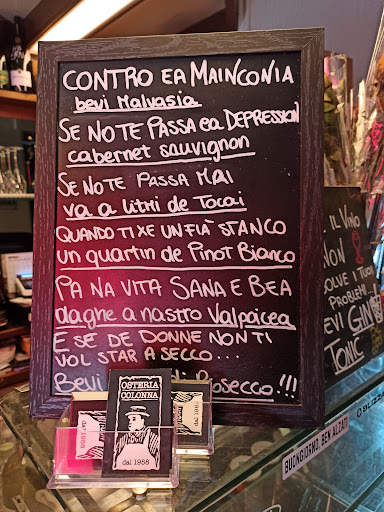 CONTRO EA MAINCONIA
bevi Malvasia
SE NOTE PASSA EA DEPRESSION
cabernet sauvignon
SE NOTE PASSA MAI
va a litri de Tocai
QUANDO TI XE UN FIÀ STANCO
un quartin de Pinot Bianco
PA NA VITA SANA E BEA
daghe a nastro Valpoicea
E SE DE DONNE NON TI
VOL STAR A SECCO...
Bevi Prosecco!!!
OSTERIA
COLONNA
dal 1958
IL VINO
NON
SOLVE I TUOI
PROBLEMI
BEVI GIN
TONIC
BUONGIORNO, BEN ALZATI